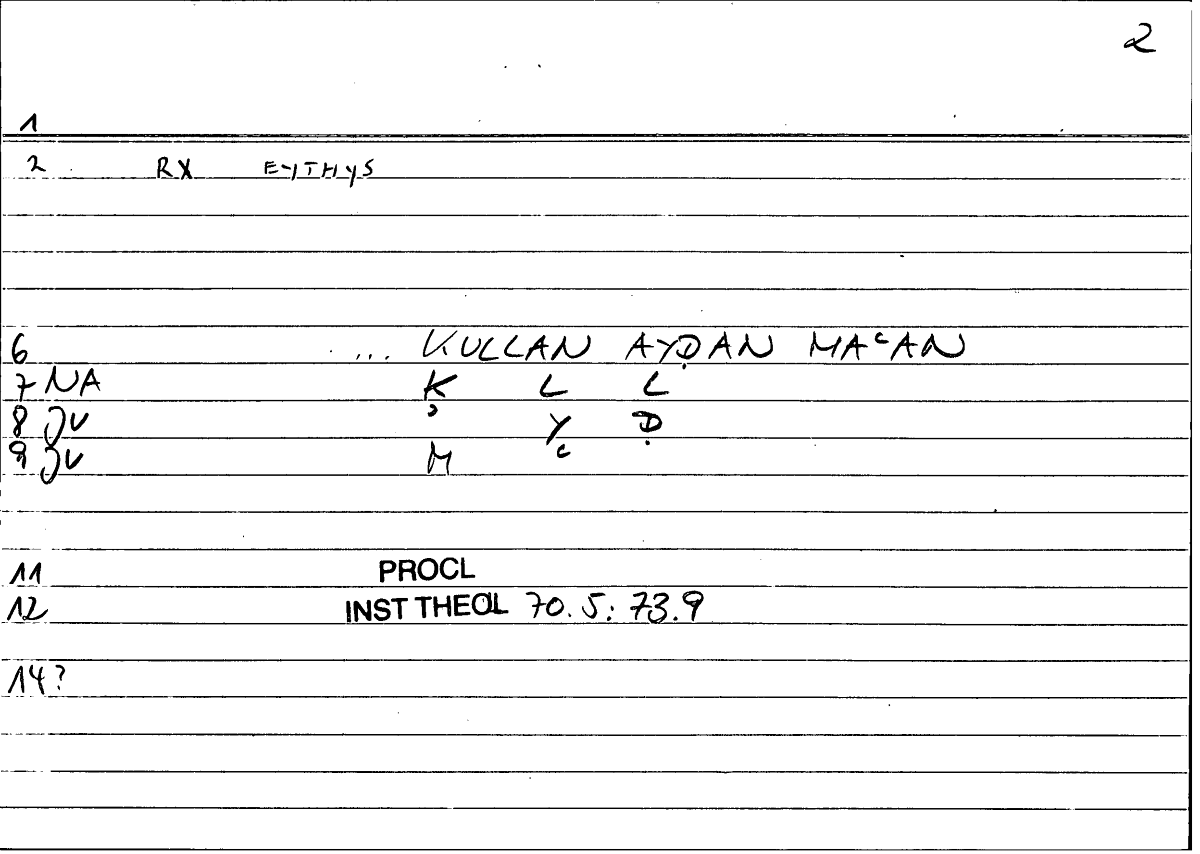 2
1
2 RX EYTHYS
6 ... KULLAN AYḌAN MAᶜAN
7 NA K L L
8 JV ʾ Y Ḍ
9 JV M ᶜ
11 PROCL
12 INST THEOL 70.5: 73.9
14?